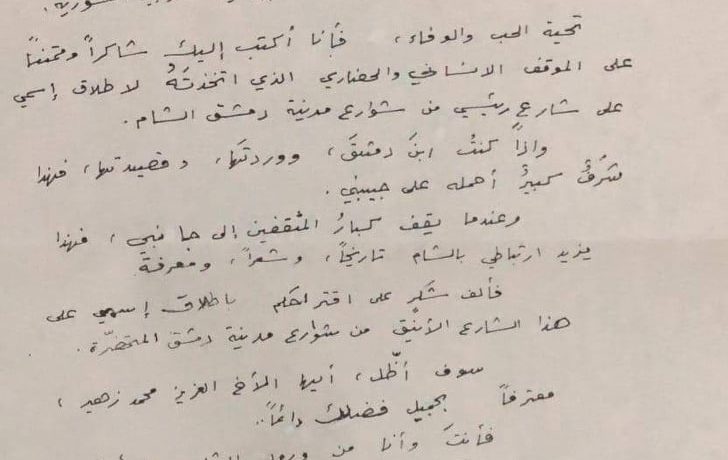 سورية.
تحية الحب والوفاء، فأنا أكتب إليك شاكراً وممتناً
على الموقف الانساني والحضاري الذي اتخذتَهُ لاطلاق إسمي
على شارع رئيسي من شوارع مدينة دمشق الشام.
واذا كنتُ ابنَ دمشقَ، ووردتَها، وقصيدتها، فهذا
شَرَفٌ كبيرٌ أحمله على جبيني.
وعندما يقف كبارُ المثقفين إلى جانبي، فهذا
يزيد ارتباطي بالشام تاريخاً، وشعراً، ومعرفة.
فألف شكر على اقتراحكم باطلاق إسمي على
هذا الشارع الأنيق من شوارع مدينة دمشق المتحضّرة.
سوف أظّل، أيها الأخ العزيز محمد زهير،
معترفاً بجميل فضلك دائماً..
فأنتَ وأنا من